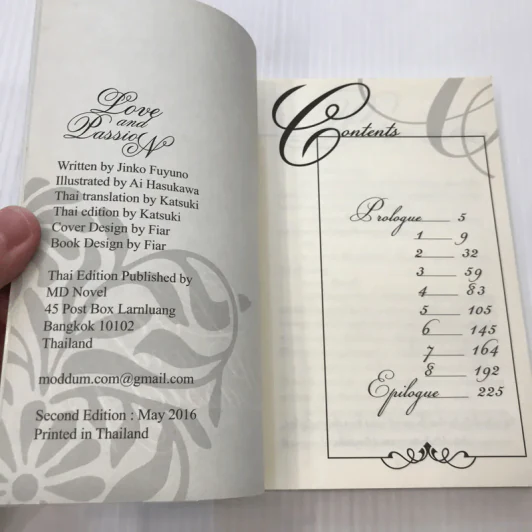 Love
and
PassioN
Written by Jinko Fuyuno
Illustrated by Ai Hasukawa
Thai translation by Katsuki
Thai edition by Katsuki
Cover Design by Fiar
Book Design by Fiar
Thai Edition Published by
MD Novel
45 Post Box Larnluang
Bangkok 10102
Thailand
moddum.com@gmail.com
Second Edition : May 2016
Printed in Thailand
Contents
Prologue 5
1 9
2 32
3 59
4 83
5 105
6 145
7 164
8 192
Epilogue 225